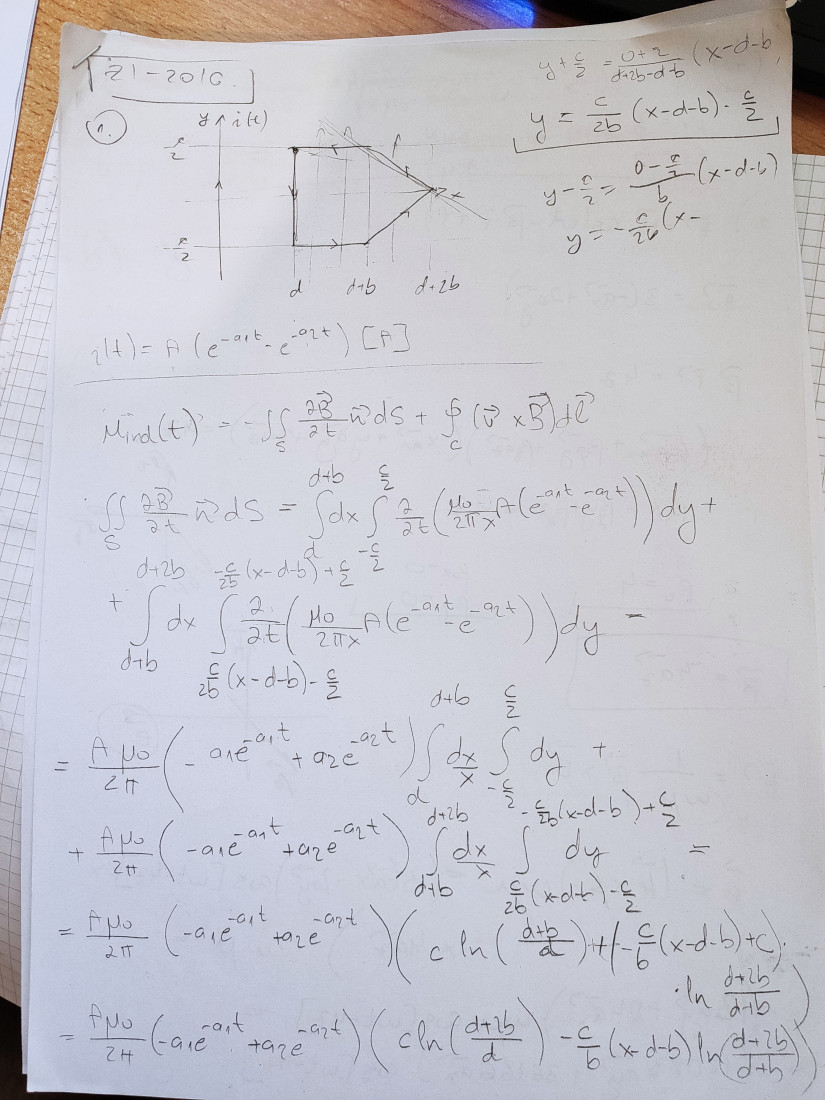 ZI-2016.
y + c/2 = (0+2)/(d+2b-d-b) (x-d-b
y = c/2b (x-d-b) - c/2
1.
y i(t)
c/2
x
-c/2
d d+b d+2b
y - c/2 = (0 - c/2)/b (x-d-b)
y = -c/2b (x-
i(t) = A (e^{-a1t} - e^{-a2t}) [A]
Mind(t) = -∬_S ∂B⃗/∂t n⃗ dS + ∮_c (v⃗ x B⃗) dl⃗
∬_S ∂B⃗/∂t n⃗ dS = ∫_d^{d+b} dx ∫_{-c/2}^{c/2} ∂/∂t (μ0/2πx A (e^{-a1t} - e^{-a2t})) dy +
+ ∫_{d+b}^{d+2b} dx ∫_{c/2b (x-d-b) - c/2}^{-c/2b (x-d-b) + c/2} ∂/∂t (μ0/2πx A (e^{-a1t} - e^{-a2t})) dy =
= Aμ0/2π (-a1e^{-a1t} + a2e^{-a2t}) ∫_d^{d+b} dx/x ∫_{-c/2}^{c/2} dy +
+ Aμ0/2π (-a1e^{-a1t} + a2e^{-a2t}) ∫_{d+b}^{d+2b} dx/x ∫_{c/2b (x-d-b) - c/2}^{-c/2b (x-d-b) + c/2} dy =
= Aμ0/2π (-a1e^{-a1t} + a2e^{-a2t}) (c ln((d+b)/d) + (-c/b (x-d-b) + c) ·
· ln (d+2b)/(d+b))
= Aμ0/2π (-a1e^{-a1t} + a2e^{-a2t}) (c ln((d+2b)/d) - c/b (x-d-b) ln((d+2b)/(d+b)))